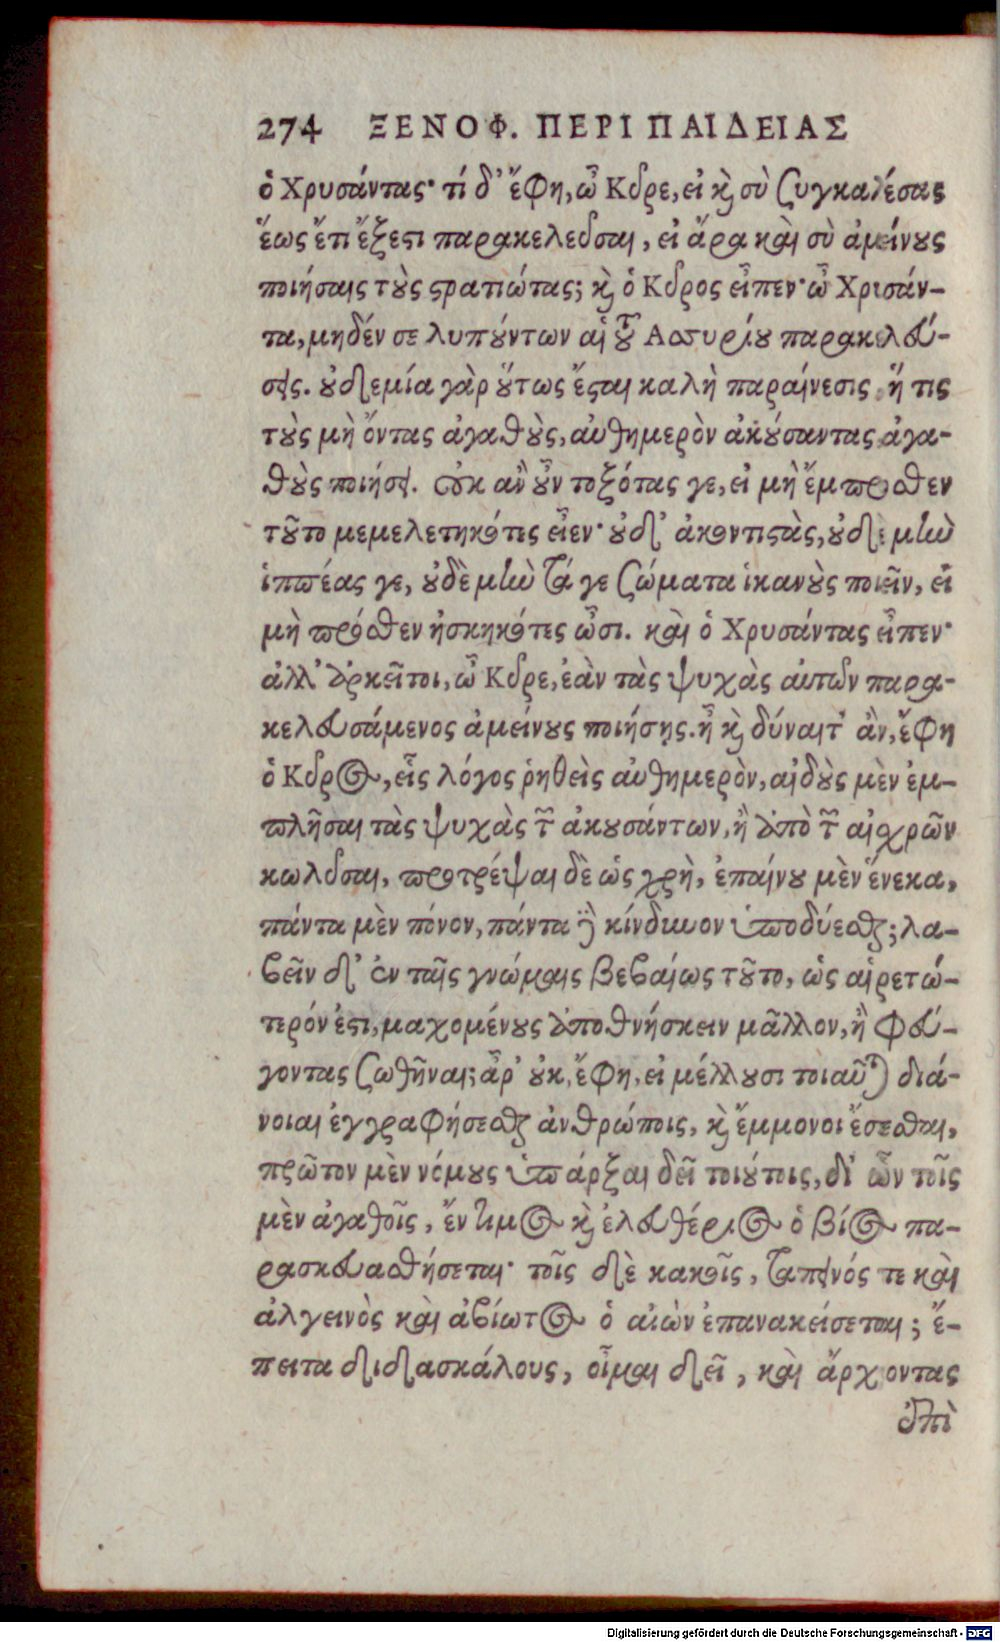 274 ΞΕΝΟΦ. ΠΕΡΙ ΠΑΙΔΕΙΑΣ
ὁ Χρυσάντας· τί δ’ ἔφη, ὦ Κῦρε, εἰ καὶ σὺ συγκαλέσας
ἕως ἔτι ἔξεστι παρακελεῦσαι, εἰ ἄρα καὶ σὺ ἀμείνους
ποιήσαις τοὺς στρατιώτας; καὶ ὁ Κῦρος εἶπεν· ὦ Χρισάν-
τα, μηδέν σε λυπούντων αἱ τοῦ Ἀσσυρίου παρακελεύ-
σεις. οὐδεμία γὰρ οὕτως ἔσται καλὴ παραίνεσις ἥ τις
τοὺς μὴ ὄντας ἀγαθοὺς, αὐθημερὸν ἀκούσαντας ἀγα-
θοὺς ποιήσει. οὐκ ἂν οὖν τοξότας γε, εἰ μὴ ἔμπροσθεν
τοῦτο μεμελετηκότες εἶεν· οὐδ’ ἀκοντιστὰς, οὐδὲ μὴν
ἱππέας γε, οὐδὲ μὴν τά γε σώματα ἱκανοὺς ποιεῖν, εἰ
μὴ πρόσθεν ἠσκηκότες ὦσι. καὶ ὁ Χρυσάντας εἶπεν·
ἀλλ’ ἀρκεῖ τοι, ὦ Κῦρε, ἐὰν τὰς ψυχὰς αὐτῶν παρα-
κελευσάμενος ἀμείνους ποιήσῃς. ἦ καὶ δύναιτ’ ἂν, ἔφη
ὁ Κῦρος, εἷς λόγος ῥηθεὶς αὐθημερὸν, αἰδοὺς μὲν ἐμ-
πλῆσαι τὰς ψυχὰς τῶν ἀκουσάντων, ἢ ἀπὸ τῶν αἰσχρῶν
κωλῦσαι, προτρέψαι δὲ ὡς χρὴ, ἐπαίνου μὲν ἕνεκα,
πάντα μὲν πόνον, πάντα δὲ κίνδυνον ὑποδύεσθαι; λα-
βεῖν δ’ ἐν ταῖς γνώμαις βεβαίως τοῦτο, ὡς αἱρετώ-
τερόν ἐστι, μαχομένους ἀποθνήσκειν μᾶλλον, ἢ φεύ-
γοντας σωθῆναι; ἆρ’ οὐκ, ἔφη, εἰ μέλλουσι τοιαῦται διά-
νοιαι ἐγγραφήσεσθαι ἀνθρώποις, καὶ ἔμμονοι ἔσεσθαι,
πρῶτον μὲν νόμους ὑπάρξαι δεῖ τοιούτοις, δι’ ὧν τοῖς
μὲν ἀγαθοῖς, ἔντιμος καὶ ἐλευθέριος ὁ βίος πα-
ρασκευασθήσεται· τοῖς δὲ κακοῖς, ταπεινός τε καὶ
ἀλγεινὸς καὶ ἀβίωτος ὁ αἰὼν ἐπανακείσεται; ἔ-
πειτα διδασκάλους, οἶμαι δεῖ, καὶ ἄρχοντας
ἐπὶ
Digitalisierung gefördert durch die Deutsche Forschungsgemeinschaft - DFG